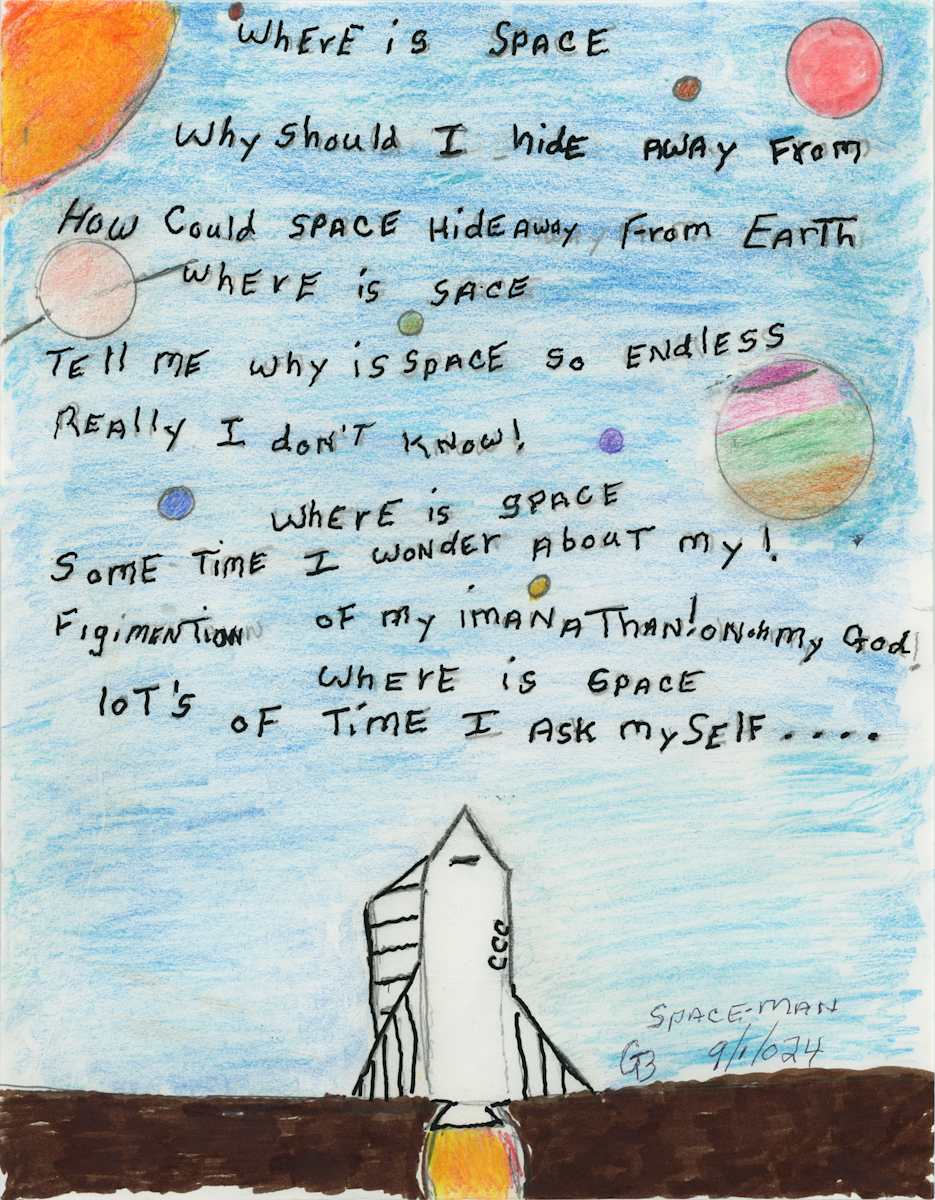 WhErE is SPACE
Why Should I hidE AWAy From
How Could SPACE HidEAWAy From EArTh
WhErE is SACE
TEll ME Why is SPACE So ENdlESS
REAlly I doN'T KNow!
WhErE is SPACE
SomE TimE I WoNdEr AbouT my!
FigimENTioN oF my imANAThAN! oNoh my God!
WhErE is SPACE
loT's oF TimE I ASK mySElF.....
CCC
SPACE-MAN
GB 9/1/024